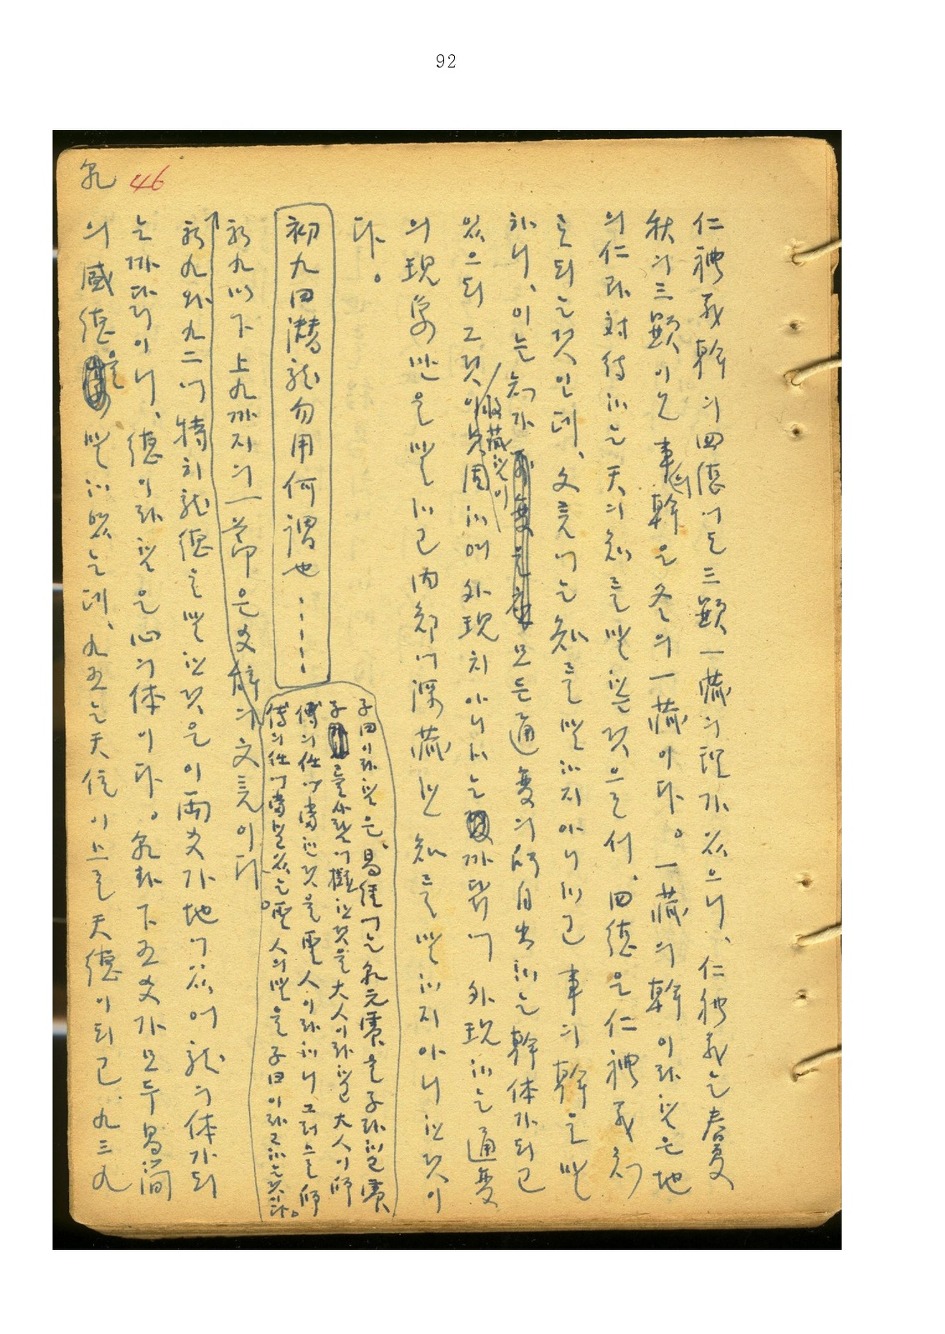 92
乾 46
仁禮義幹의 四德에도 三顯一藏의 理가 있으니, 仁禮義는 春夏
秋의 三顯이오 事의 幹은 冬의 一藏이다。一藏의 幹이라 함은 地
의 仁과 對待하는 天의 知를 말함으로서, 四德은 仁禮義知
로 되는것인데, 文言에는 知를 말하지 아니하고 事의 幹을 말
하니, 이는 知가 모든 通變의 所自出하는 幹体가되고
있으되 그것이 收藏함이 周하여 外現치 아니하는 까닭에 外現하는 通變
의 現象만을 말하고 內部에 深藏한 知를 말하지 아니한것이
다。
初九曰潛龍勿用何謂也……
子曰이라함은, 易經에는 乾元
子를
大人이라함은 大人이 師
傅의 任에 當한것을 聖人이라하니 그러므로 師
傅의 任에 當한 聖人의 말을 子曰이라고 하는것이다。
初九以下 上九까지의 一節은 爻辭의 文言이다。
初九와 九二에 特히 龍德을 말한것은 이 兩爻가 地에 있어 龍의 体가되
는 까닭이니, 德이라 함은 心의 体이다。乾卦 下五爻가 모두 易簡
의 盛德을 말하였는데, 九五는 天位이므로 天德이 되고, 九三九